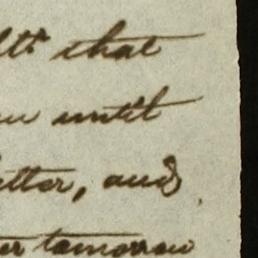 that
until
etter, and
tomorrow